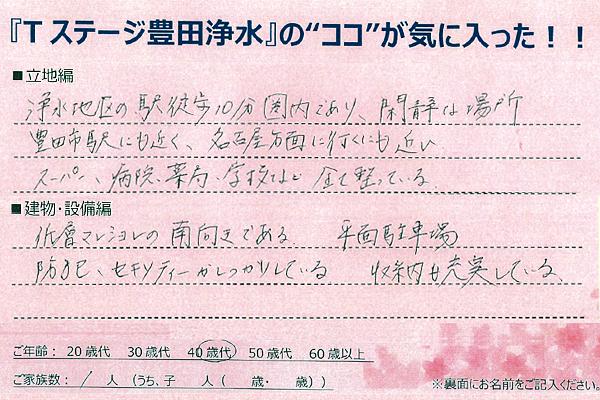 『Tステージ豊田浄水』の“ココ”が気に入った！！
■立地編
浄水地区の駅徒歩10分圏内であり、閑静な場所
豊田市駅にも近く、名古屋方面に行くにも近い
スーパー、病院、薬局、学校など全て整っている。
■建物・設備編
低層マンションの南向きである。 平面駐車場
防犯、セキュリティーがしっかりしている 収納も充実している。
ご年齢：20歳代 30歳代 40歳代 50歳代 60歳以上
ご家族数：1人（うち、子 人（ 歳・ 歳））
※裏面にお名前をご記入ください。